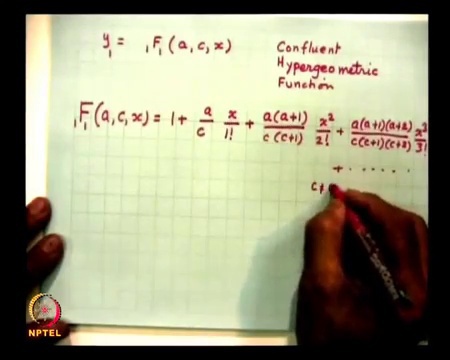 y₁ = ₁F₁ (a, c, x) Confluent
Hypergeometric
Function
₁F₁(a, c, x) = 1 + a/c x/1! + a(a+1)/c(c+1) x²/2! + a(a+1)(a+2)/c(c+1)(c+2) x³/3!
+ . . . . . .
c ≠
NPTEL